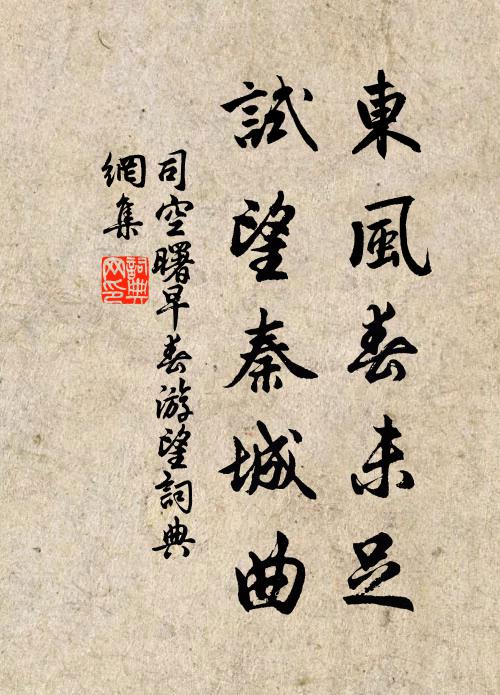 東風春未足
試望秦城曲
司空曙早春游望詞典
網集
詞典
网印